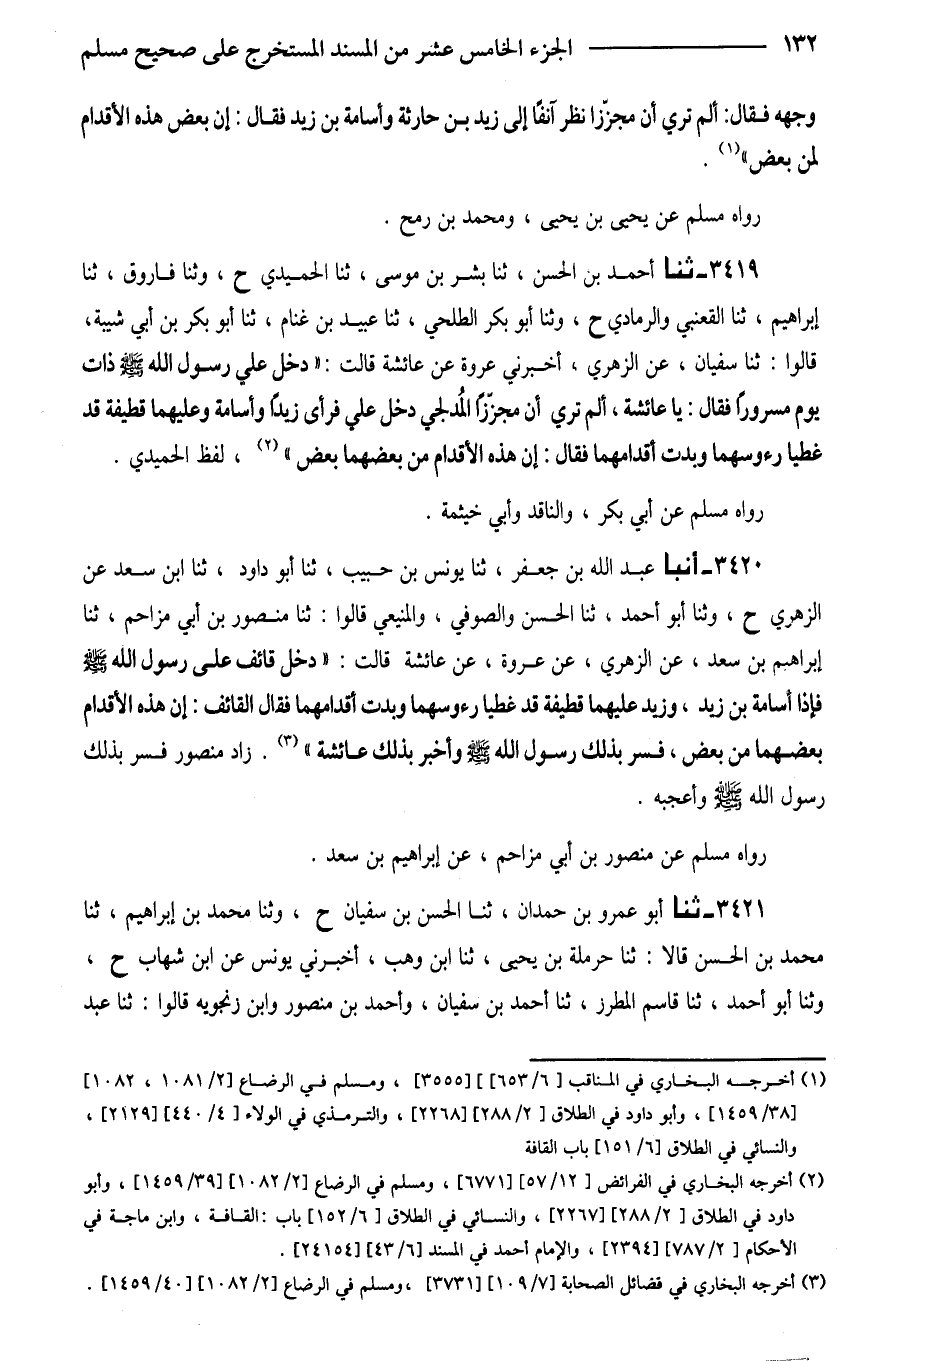 ١٣٢ ــــــــــــ الجزء الخامس عشر من المسند المستخرج على صحيح مسلم
وجهه فقال: ألم تري أن مجزّزا نظر آنفًا إلى زيد بن حارثة وأسامة بن زيد فقال : إن بعض هذه الأقدام
لمن بعض»(١) .
رواه مسلم عن يحيى بن يحيى ، ومحمد بن رمح .
٣٤١٩ـ ثنا أحمد بن الحسن ، ثنا بشر بن موسى ، ثنا الحميدي ح ، وثنا فاروق ، ثنا
إبراهيم ، ثنا القعنبي والرمادي ح ، وثنا أبو بكر الطلحي ، ثنا عبيد بن غنام ، ثنا أبو بكر بن أبي شيبة،
قالوا : ثنا سفيان ، عن الزهري ، أخبرني عروة عن عائشة قالت :« دخل علي رسول الله ﷺ ذات
يوم مسرورًا فقال : يا عائشة ، ألم تري أن مجزّزًا المُدلجي دخل علي فرأى زيدًا وأسامة وعليهما قطيفة قد
غطيا رءوسهما وبدت أقدامهما فقال : إن هذه الأقدام من بعضهما بعض »(٢) ، لفظ الحميدي .
رواه مسلم عن أبي بكر ، والناقد وأبي خيثمة .
٣٤٢٠ـ أنبا عبد الله بن جعفر ، ثنا يونس بن حبيب ، ثنا أبو داود ، ثنا ابن سعد عن
الزهري ح ، وثنا أبو أحمد ، ثنا الحسن والصوفي ، والمنيعي قالوا : ثنا منصور بن أبي مزاحم ، ثنا
إبراهيم بن سعد ، عن الزهري ، عن عروة ، عن عائشة قالت : « دخل قائف على رسول الله ﷺ
فإذا أسامة بن زيد ، وزيد عليهما قطيفة قد غطيا رءوسهما وبدت أقدامهما فقال القائف : إن هذه الأقدام
بعضهما من بعض ، فسر بذلك رسول الله ﷺ وأخبر بذلك عائشة »(٣) . زاد منصور فسر بذلك
رسول الله ﷺ وأعجبه .
رواه مسلم عن منصور بن أبي مزاحم ، عن إبراهيم بن سعد .
٣٤٢١ـ ثنا أبو عمرو بن حمدان ، ثنا الحسن بن سفيان ح ، وثنا محمد بن إبراهيم ، ثنا
محمد بن الحسن قالا : ثنا حرملة بن يحيى ، ثنا ابن وهب ، أخبرني يونس عن ابن شهاب ح ،
وثنا أبو أحمد ، ثنا قاسم المطرز ، ثنا أحمد بن سفيان ، وأحمد بن منصور وابن زنجويه قالوا : ثنا عبد
(١) أخرجه البخاري في المناقب [ ٦/ ٦٥٣] [ ٣٥٥٥] ، ومسلم في الرضاع [٢/ ١٠٨١ ، ١٠٨٢]
[٣٨/ ١٤٥٩] ، وأبو داود في الطلاق [ ٢/ ٢٨٨] [٢٢٦٨] ، والترمذي في الولاء [ ٤/ ٤٤٠] [٢١٢٩] ،
والنسائي في الطلاق [٦/ ١٥١] باب القافة
(٢) أخرجه البخاري في الفرائض [ ١٢/ ٥٧] [٦٧٧١] ، ومسلم في الرضاع [٢/ ١٠٨٢] [٣٩/ ١٤٥٩] ، وأبو
داود في الطلاق [ ٢/ ٢٨٨] [٢٢٦٧] ، والنسائي في الطلاق [ ٦/ ١٥٢] باب :القافة ، وابن ماجة في
الأحكام [ ٢/ ٧٨٧] [٢٣٩٤] ، والإمام أحمد في المسند [٦/ ٤٣] [٢٤١٥٤] .
(٣) أخرجه البخاري في فضائل الصحابة [٧/ ١٠٩] [٣٧٣١] ،ومسلم في الرضاع [٢/ ١٠٨٢] [٤٠/ ١٤٥٩] .